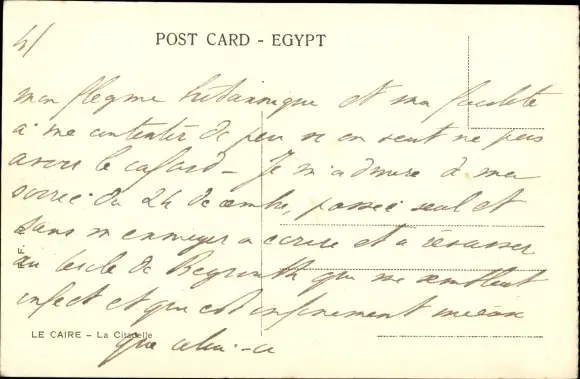 4/
POST CARD - EGYPT
mon flegme britannique et ma facilité
à me contenter de peu si on veut ne pas
avoir le cafard - Je m'admire à ma
soirée du 24 décembre, passée seul et
sans m'ennuyer à écrire et à
au cercle de Beyrouth que me semblait
infect et que est infiniment mieux
que celui-ci
LE CAIRE - La Citadelle